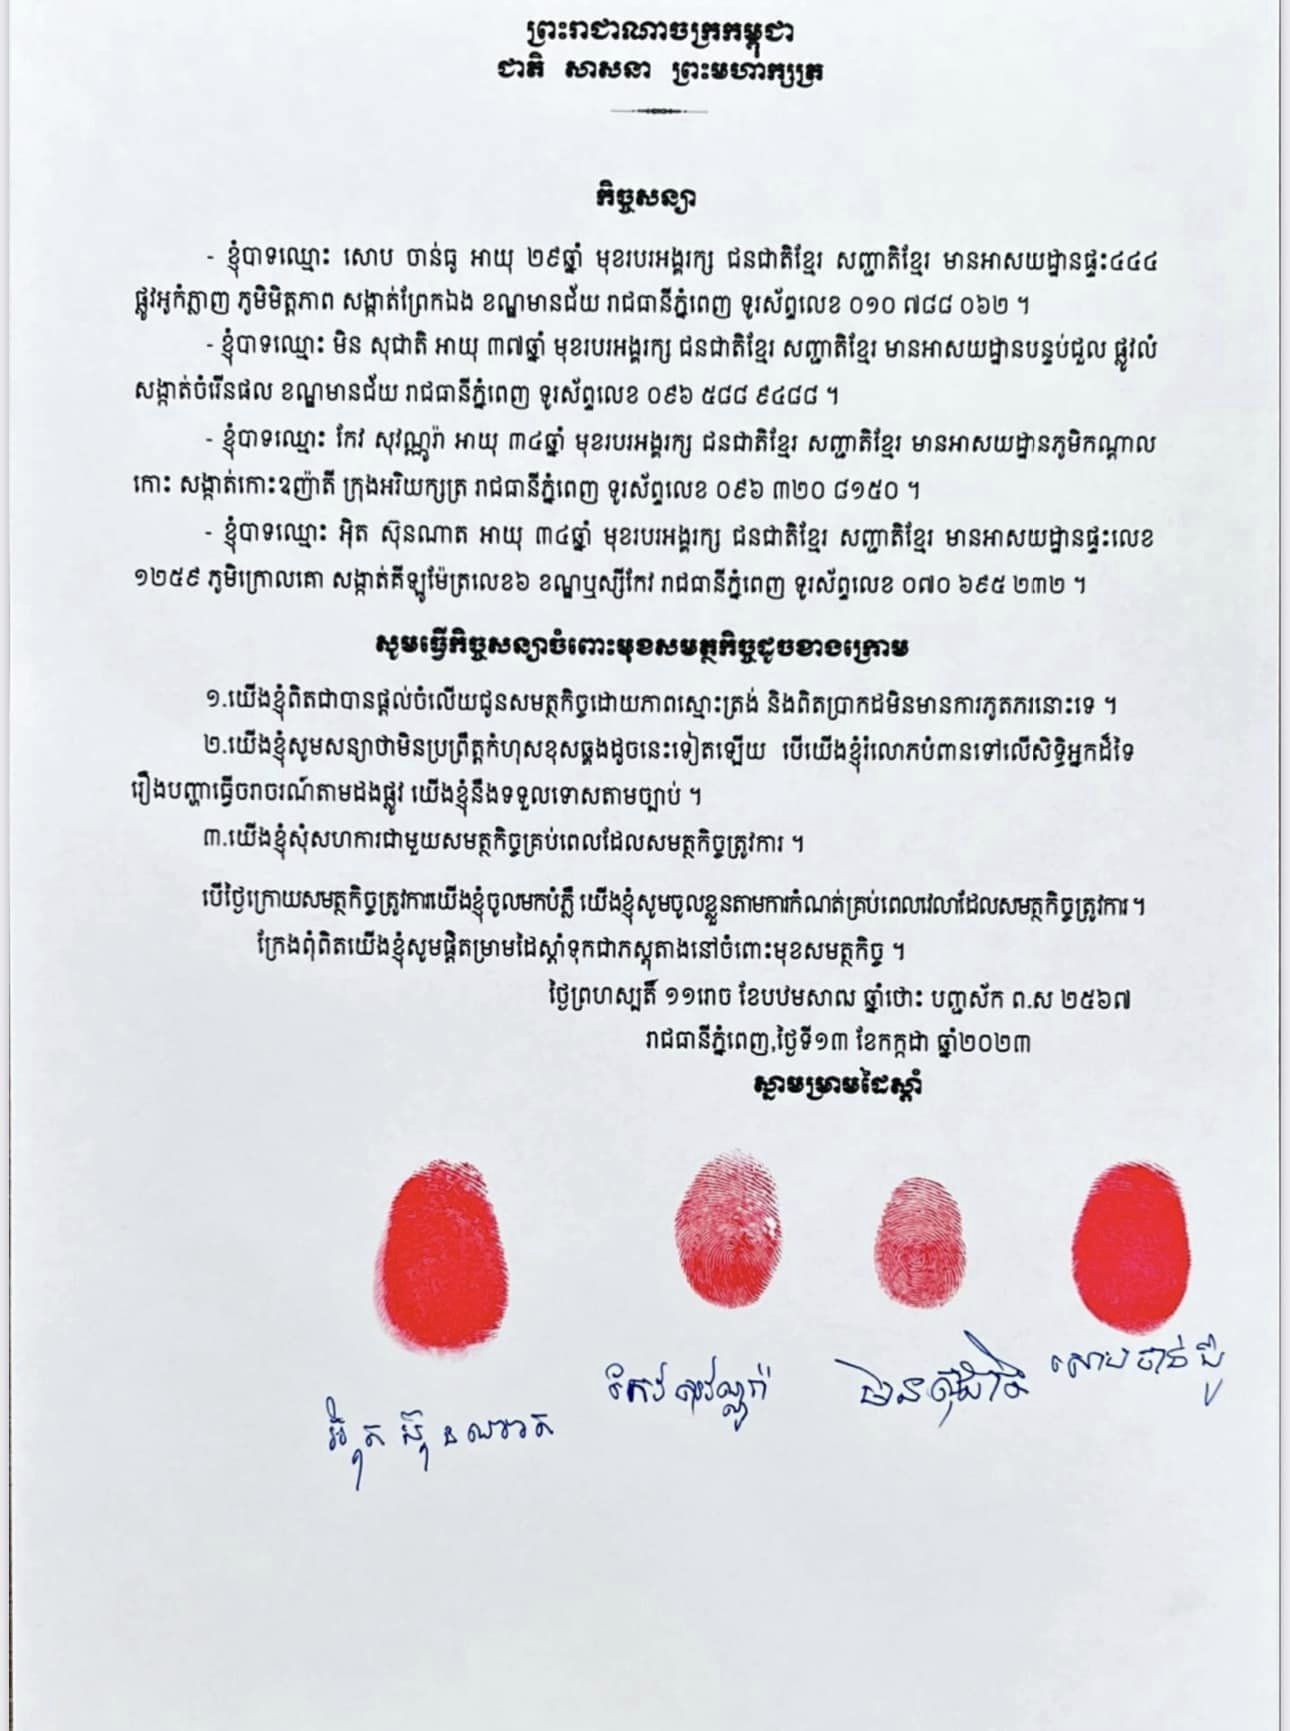 ព្រះរាជាណាចក្រកម្ពុជា
ជាតិ សាសនា ព្រះមហាក្សត្រ
កិច្ចសន្យា
- ខ្ញុំបាទឈ្មោះ សោប ចាន់ធូ អាយុ ២៩ឆ្នាំ មុខរបរអង្គរក្ស ជនជាតិខ្មែរ សញ្ជាតិខ្មែរ មានអាសយដ្ឋានផ្ទះ៤៤៤
ផ្លូវអូកំភ្លាញ ភូមិមិត្តភាព សង្កាត់ព្រែកឯង ខណ្ឌមានជ័យ រាជធានីភ្នំពេញ ទូរស័ព្ទលេខ ០១០ ៧៨៨ ០៦២ ។
- ខ្ញុំបាទឈ្មោះ មិន សុជាតិ អាយុ ៣៧ឆ្នាំ មុខរបរអង្គរក្ស ជនជាតិខ្មែរ សញ្ជាតិខ្មែរ មានអាសយដ្ឋានបន្ទប់ជួល ផ្លូវលំ
សង្កាត់ចំរើនផល ខណ្ឌមានជ័យ រាជធានីភ្នំពេញ ទូរស័ព្ទលេខ ០៩៦ ៥៨៨ ៩៤៨៨ ។
- ខ្ញុំបាទឈ្មោះ កែវ សុវណ្ណូរ៉ា អាយុ ៣៤ឆ្នាំ មុខរបរអង្គរក្ស ជនជាតិខ្មែរ សញ្ជាតិខ្មែរ មានអាសយដ្ឋានភូមិកណ្តាល
កោះ សង្កាត់កោះឧញ៉ាតី ក្រុងអរិយក្សត្រ រាជធានីភ្នំពេញ ទូរស័ព្ទលេខ ០៩៦ ៣២០ ៨១៥០ ។
- ខ្ញុំបាទឈ្មោះ អ៊ិត ស៊ុនណាត អាយុ ៣៤ឆ្នាំ មុខរបរអង្គរក្ស ជនជាតិខ្មែរ សញ្ជាតិខ្មែរ មានអាសយដ្ឋានផ្ទះលេខ
១២៥៩ ភូមិក្រោលគោ សង្កាត់គីឡូម៉ែត្រលេខ៦ ខណ្ឌឬស្សីកែវ រាជធានីភ្នំពេញ ទូរស័ព្ទលេខ ០៧០ ៦៩៥ ២៣២ ។
សូមធ្វើកិច្ចសន្យាចំពោះមុខសមត្ថកិច្ចដូចខាងក្រោម
១.យើងខ្ញុំពិតជាបានផ្តល់ចំលើយជូនសមត្ថកិច្ចដោយភាពស្មោះត្រង់ និងពិតប្រាកដមិនមានការភូតភរនោះទេ ។
២.យើងខ្ញុំសូមសន្យាថាមិនប្រព្រឹត្តកំហុសខុសឆ្គងដូចនេះទៀតឡើយ បើយើងខ្ញុំរំលោភបំពានទៅលើសិទ្ធិអ្នកដ៏ទៃ
រឿងបញ្ហាធ្វើចរាចរណ៍តាមដងផ្លូវ យើងខ្ញុំនឹងទទួលទោសតាមច្បាប់ ។
៣.យើងខ្ញុំសុំសហការជាមួយសមត្ថកិច្ចគ្រប់ពេលដែលសមត្ថកិច្ចត្រូវការ ។
បើថ្ងៃក្រោយសមត្ថកិច្ចត្រូវការយើងខ្ញុំចូលមកបំភ្លឺ យើងខ្ញុំសូមចូលខ្លួនតាមការកំណត់គ្រប់ពេលវេលាដែលសមត្ថកិច្ចត្រូវការ ។
ក្រែងពុំពិតយើងខ្ញុំសូមផ្តិតម្រាមដៃស្តាំទុកជាភស្តុតាងនៅចំពោះមុខសមត្ថកិច្ច ។
ថ្ងៃព្រហស្បតិ៍ ១១រោច ខែបឋមសាឍ ឆ្នាំថោះ បញ្ចស័ក ព.ស ២៥៦៧
រាជធានីភ្នំពេញ,ថ្ងៃទី១៣ ខែកក្កដា ឆ្នាំ២០២៣
ស្នាមម្រាមដៃស្តាំ
អ៊ិត ស៊ុនណាត
កែវ សុវណ្ណូរ៉ា
មិន សុជាតិ
សោប ចាន់ ធូ